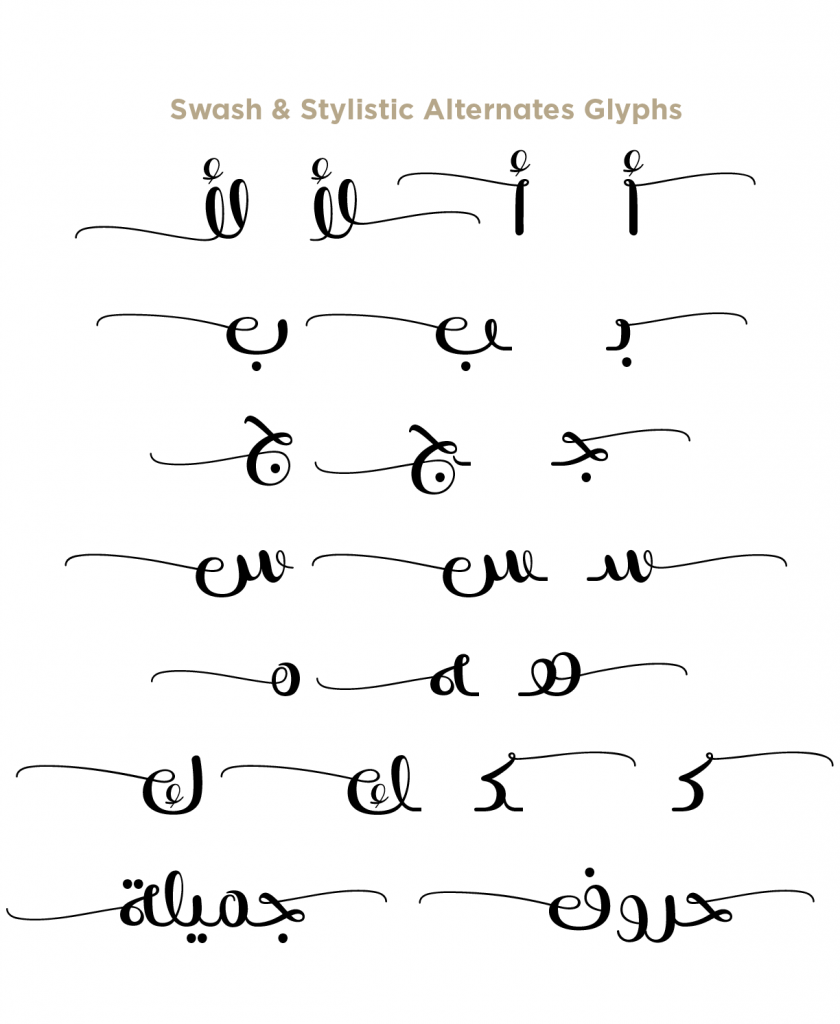 Swash & Stylistic Alternates Glyphs
أ أ لأ لأ
بـ ـب ب
جـ ـج ج
سـ ـس س
هـ ـه ه
كـ ـكـ ـك ك
حروف جميلة